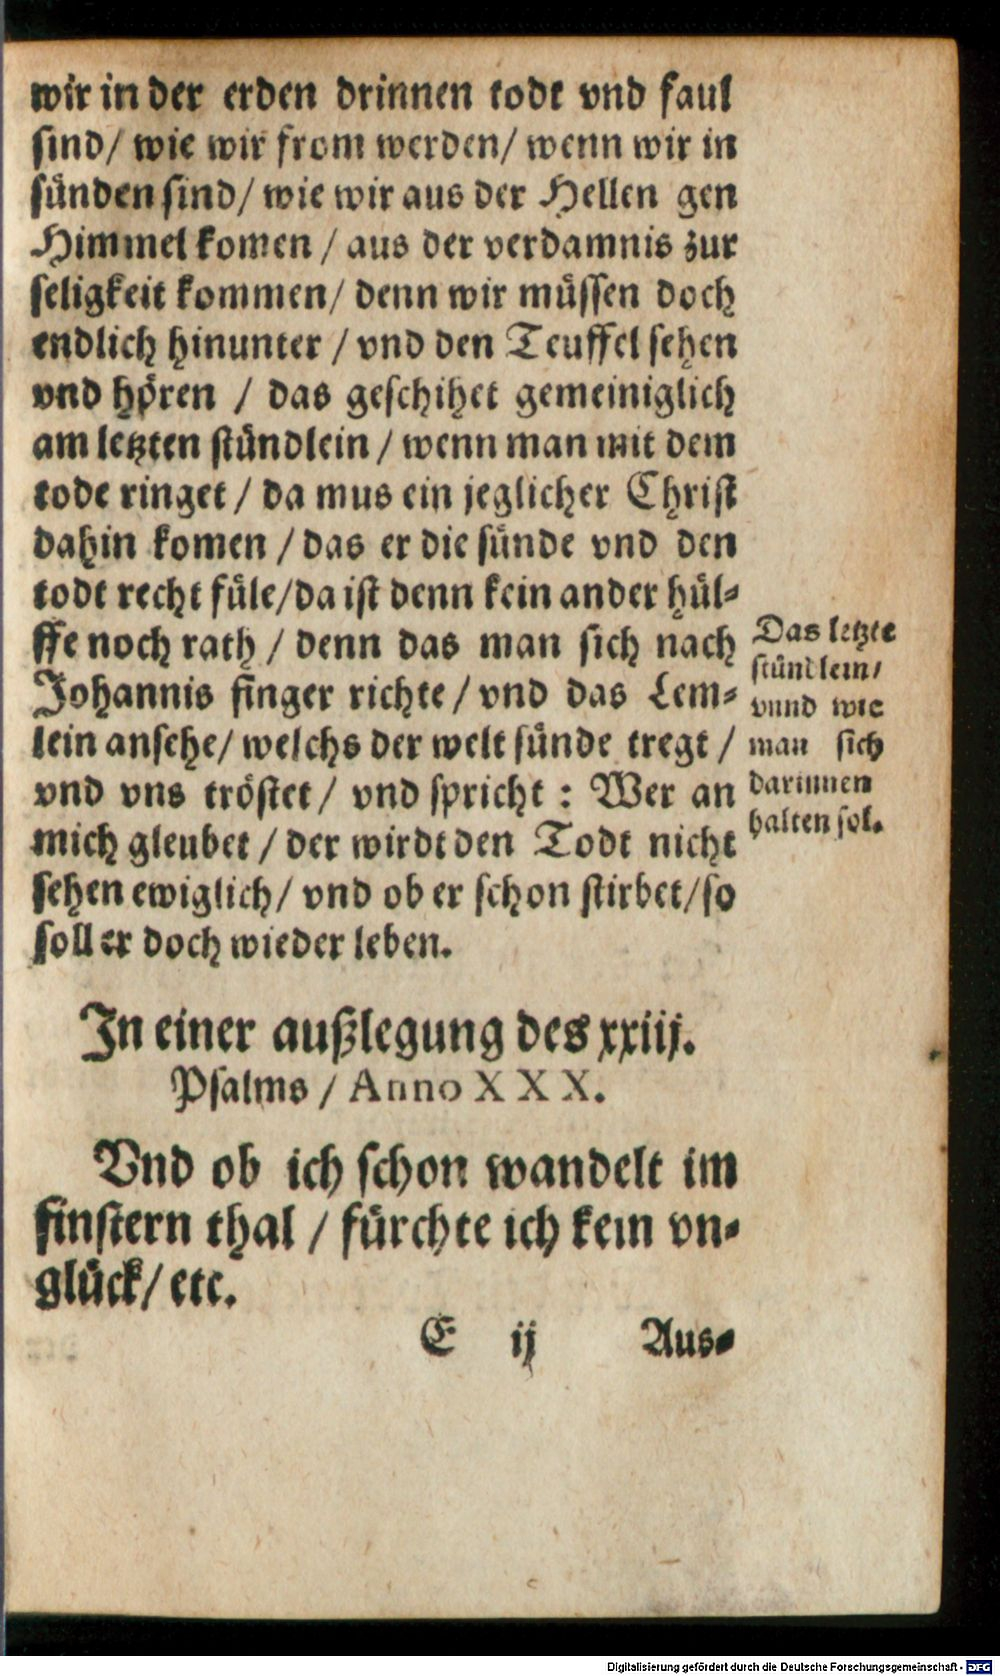 wir in der erden drinnen todt vnd faul
sind/ wie wir from werden/ wenn wir in
sünden sind/ wie wir aus der Hellen gen
Himmel komen / aus der verdamnis zur
seligkeit kommen/ denn wir müssen doch
endlich hinunter / vnd den Teuffel sehen
vnd hören / das geschihet gemeiniglich
am letzten stündlein / wenn man mit dem
tode ringet / da mus ein jeglicher Christ
dahin komen / das er die sünde vnd den
todt recht füle/da ist denn kein ander hül-
ffe noch rath / denn das man sich nach
Johannis finger richte / vnd das Lem-
lein ansehe/ welchs der welt sünde tregt /
vnd vns tröstet/ vnd spricht : Wer an
mich gleubet / der wirdt den Todt nicht
sehen ewiglich/ vnd ob er schon stirbet/so
soll er doch wieder leben.
Das letzte
stündlein/
vnnd wie
man sich
darinnen
halten sol.
In einer außlegung des xxiij.
Psalms / Anno X X X.
Vnd ob ich schon wandelt im
finstern thal / fürchte ich kein vn-
glück/ etc.
E ij Aus-
Digitalisierung gefördert durch die Deutsche Forschungsgemeinschaft - DFG